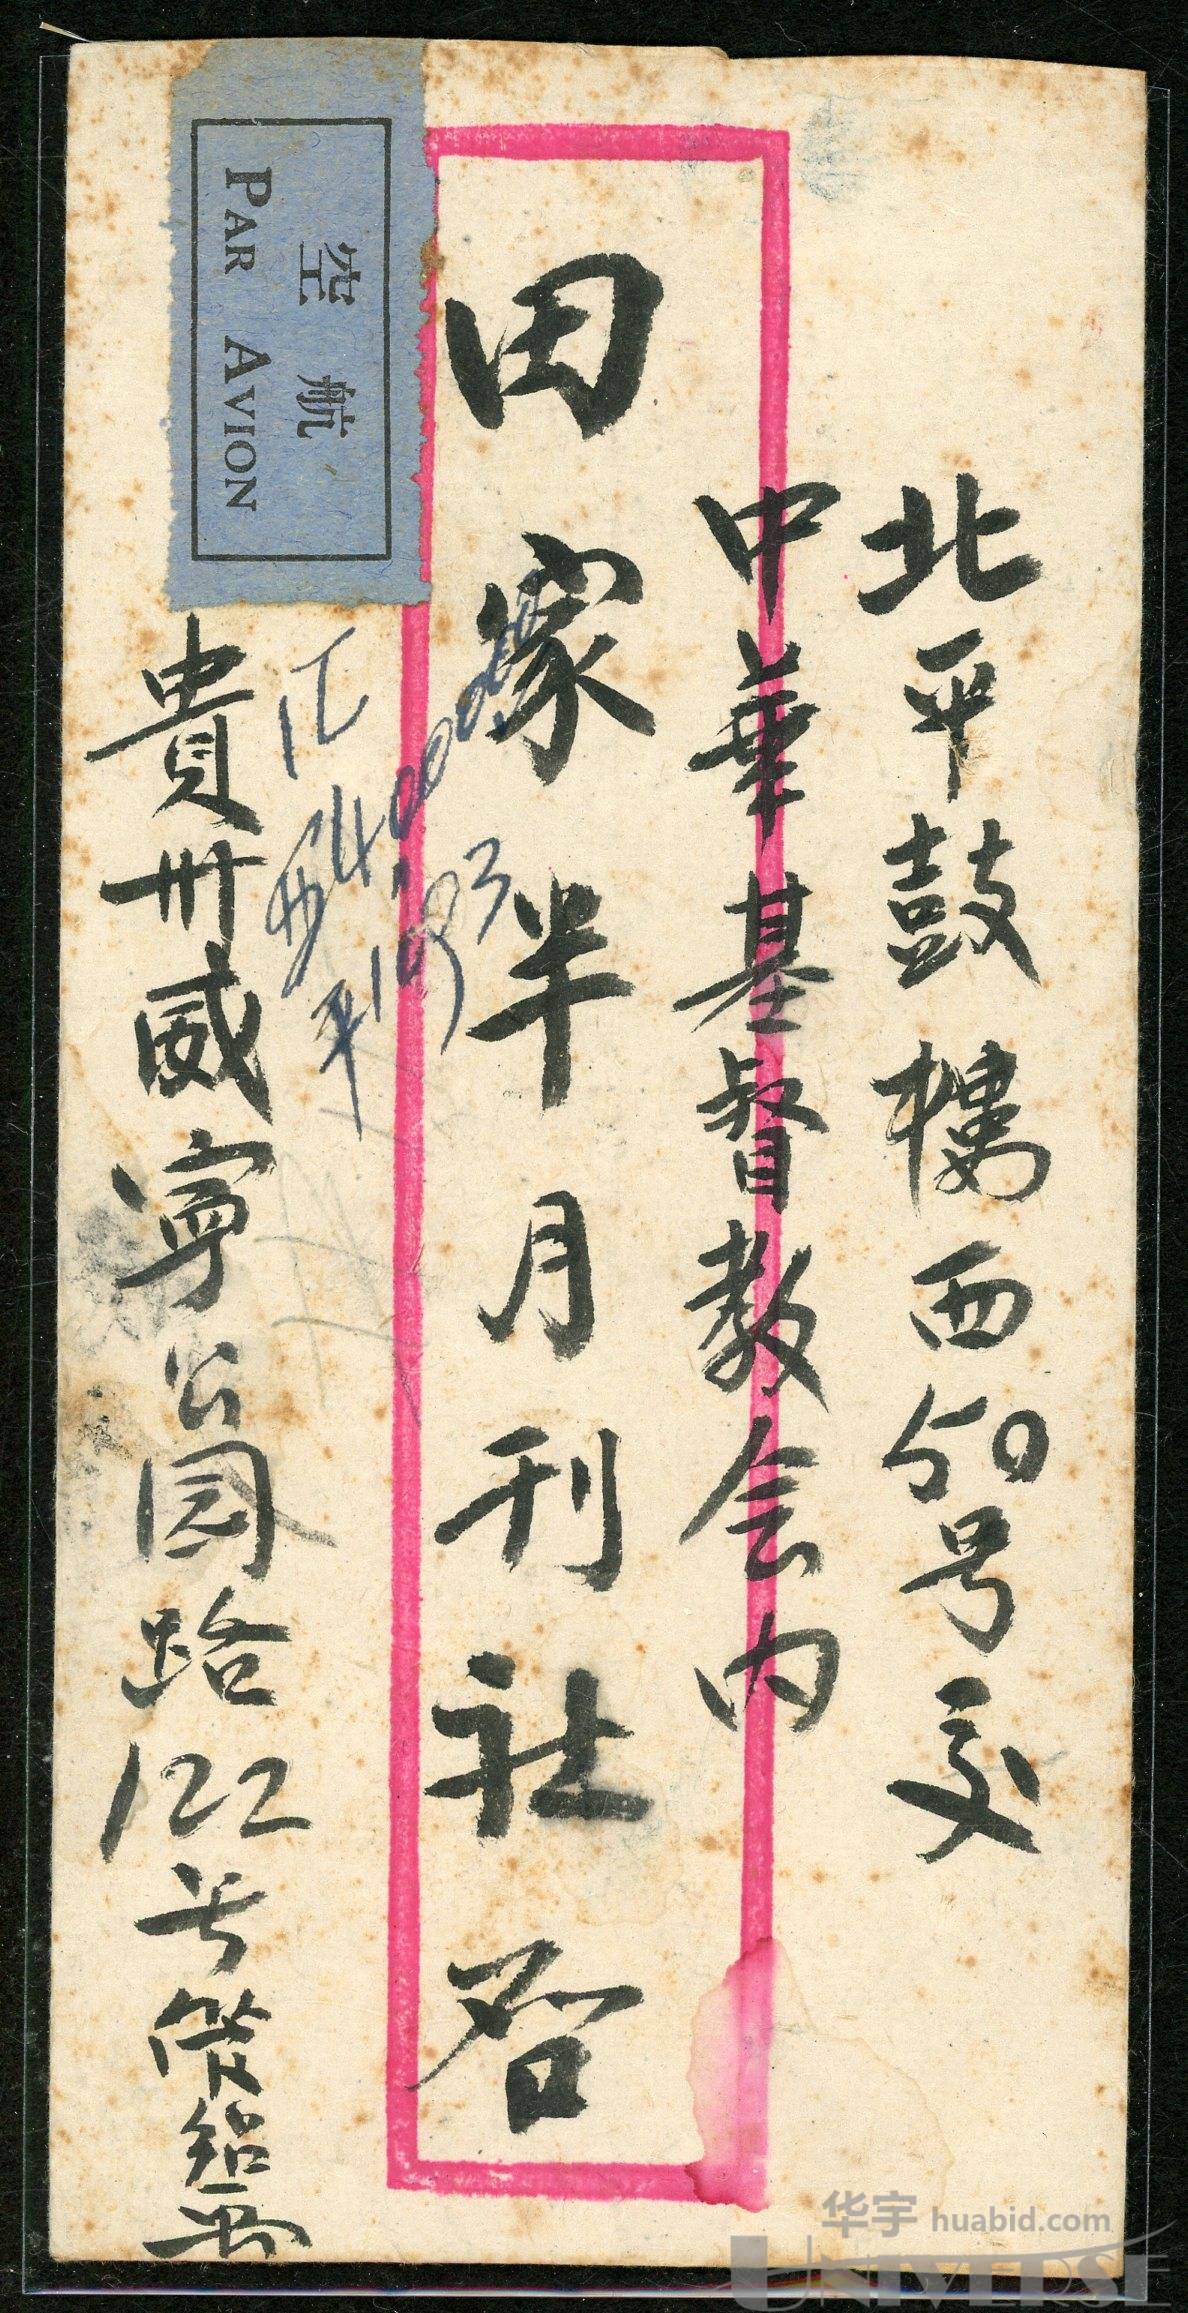 北平鼓樓西50号交
中華基督教会内
田家半月刊社启
航空
PAR AVION
汇
$400000
平1093
貴州威寧公園路122号
华宇 huabid.com
UNIVERSE